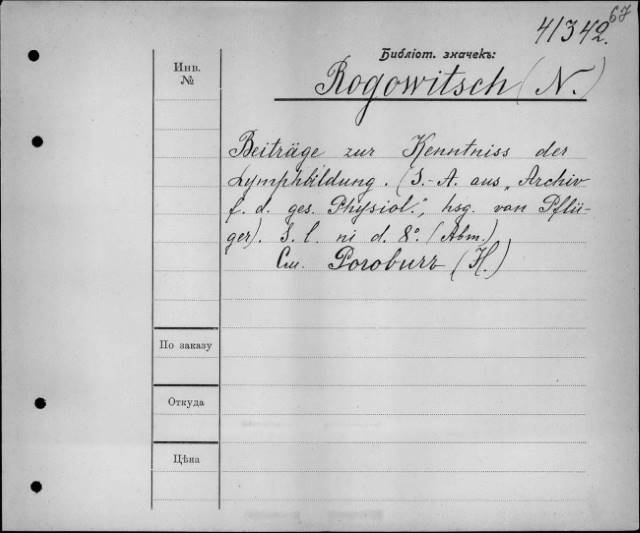 67
41342.
Библіот. значекъ:
Инв.
№
Rogowitsch (N.)
Beiträge zur Kenntniss der
Lymphbildung. (S.-A. aus „Archiv
f. d. ges. Physiol.", hsg. von Pflü-
ger). S. l. ni d. 8º. (Abm.)
См. Роговичъ (Н.)
По заказу
Откуда
Цѣна